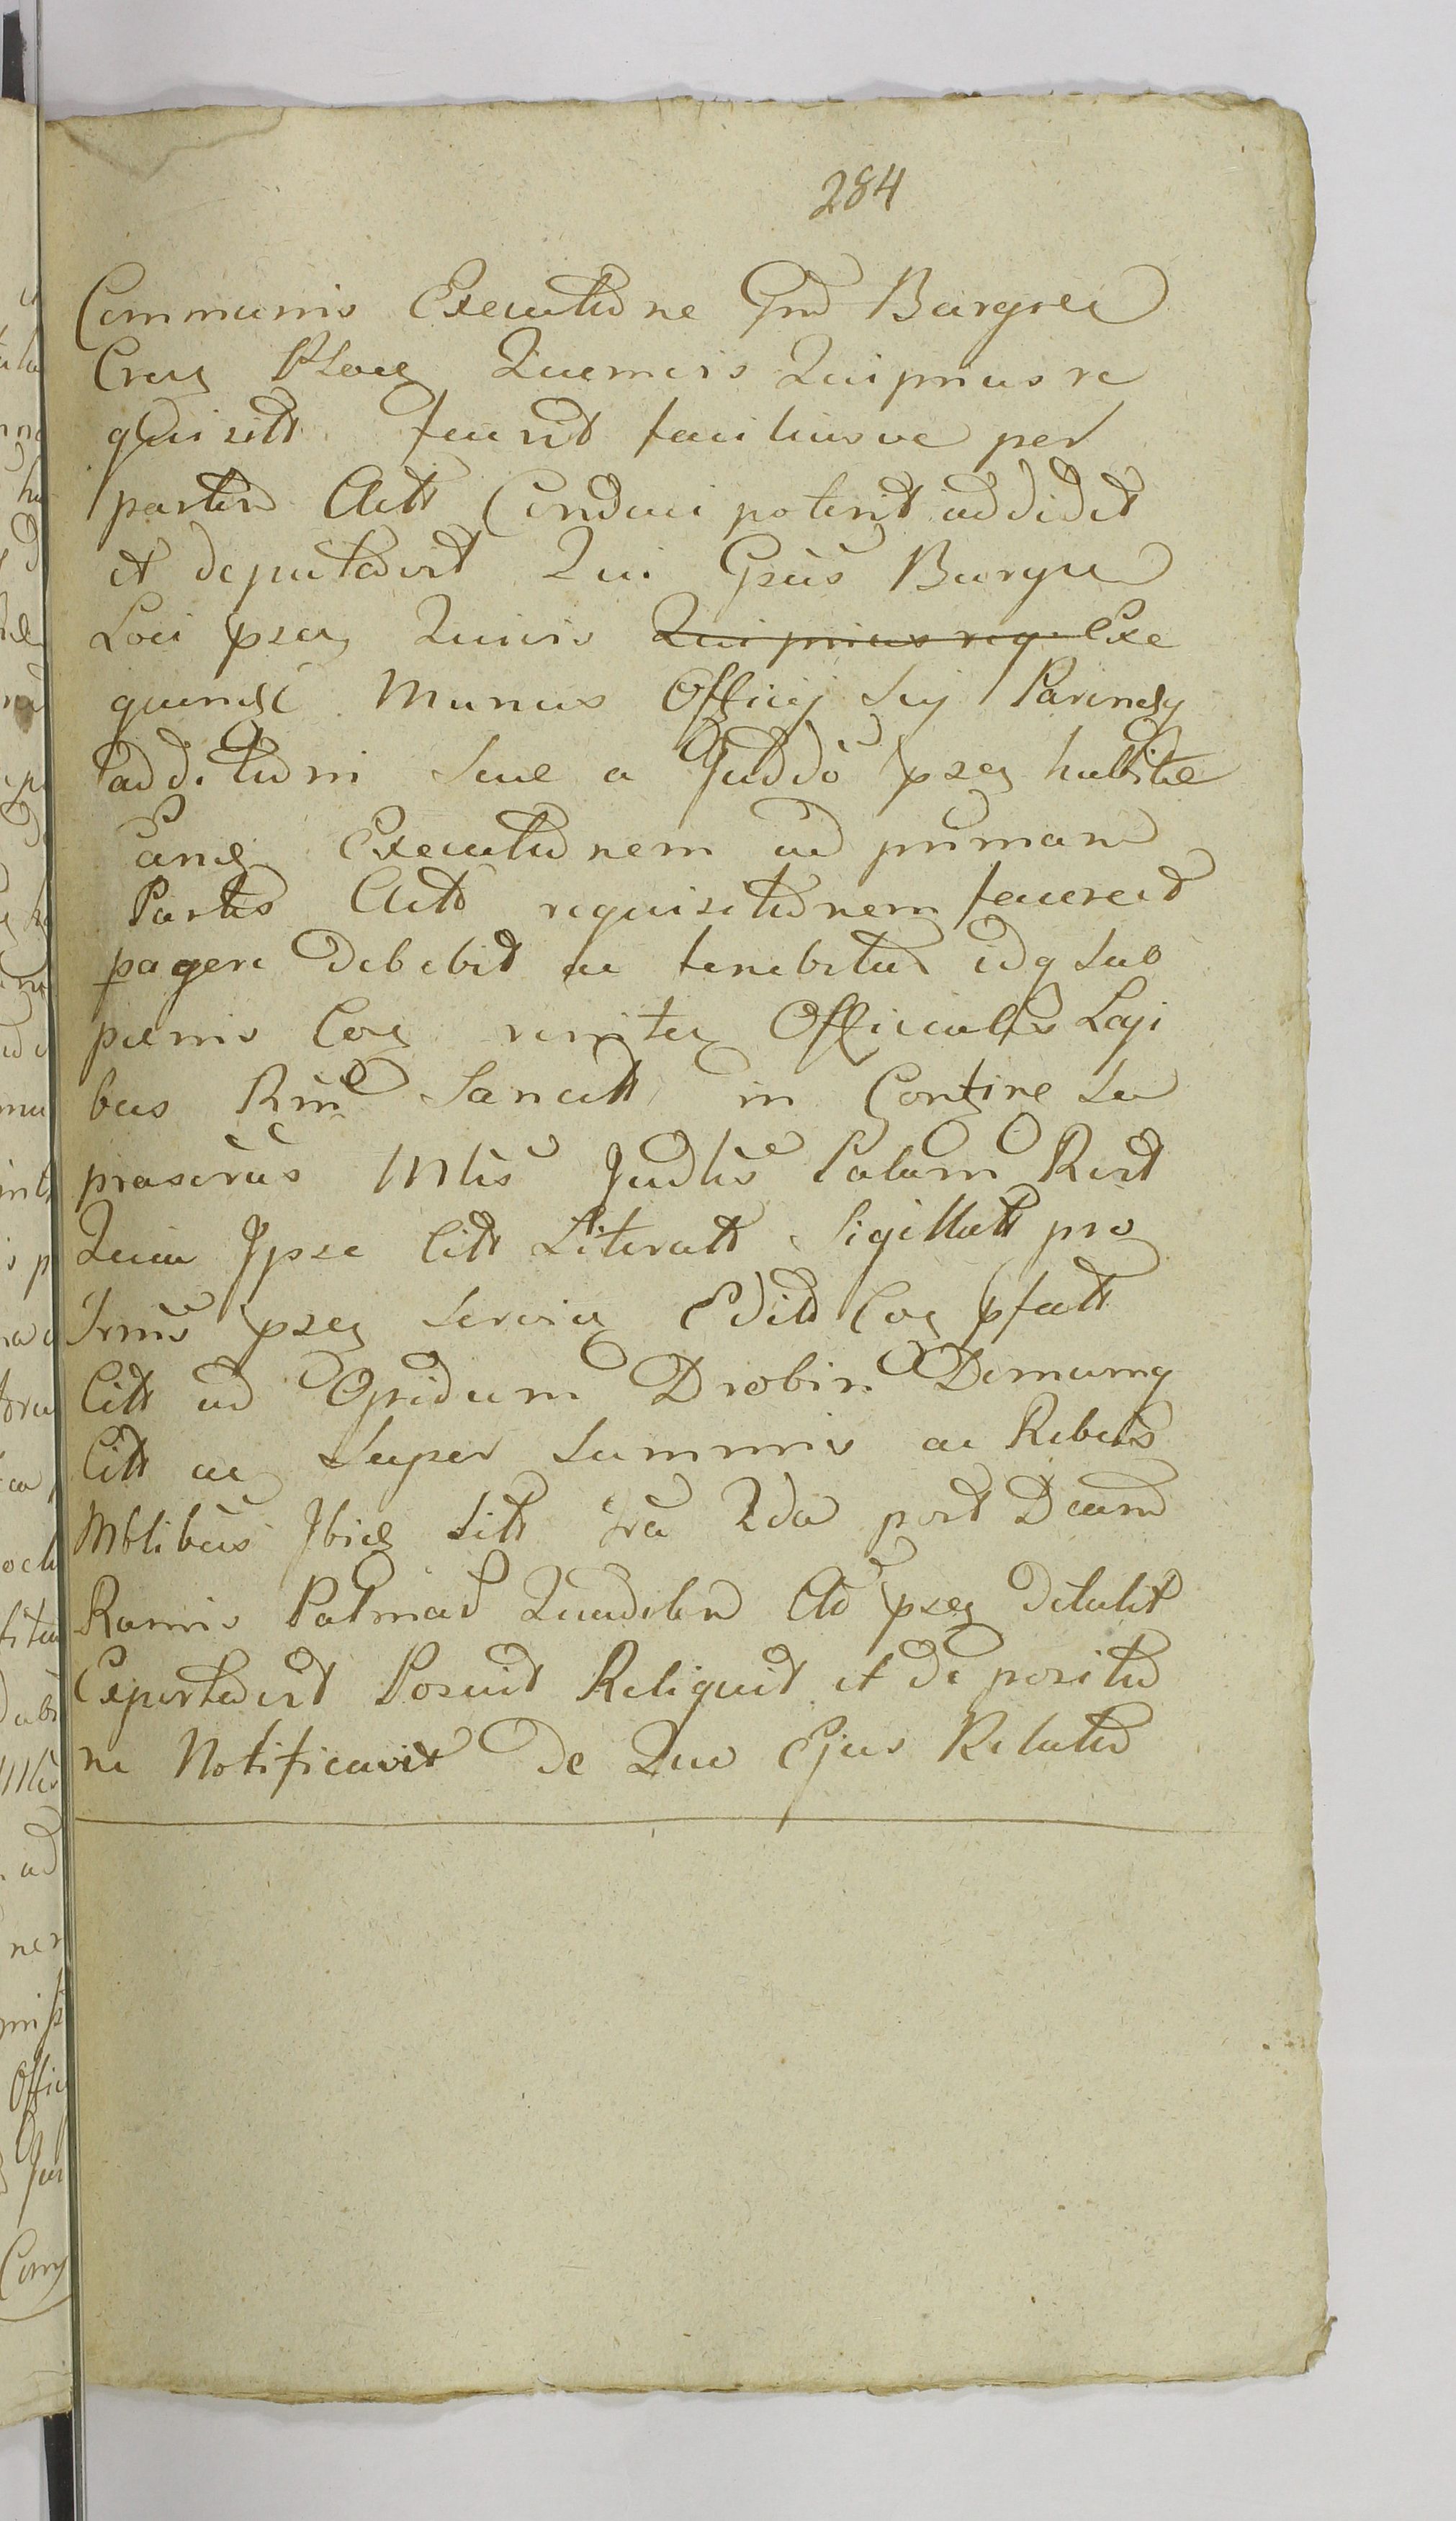 284
Communis Executione Gnd Burgrei
Crens Ploceng Quemvis Qui prius re
quisitt fuerit faciliusve per
partem Actt Conduci poterit addidit
et deputavit Qui Gnsus Burgre
Loci psens Quivis Qui prius req Exe
quendi Munus Officij Suj Parendq
additioni Suae a Juddo psens habitae
Executionem ad primam
Partis Actt requisitionem
pagere debebit ac tenebitur idq sub
paenis Officialis Legi
bus Rni Sancitt in Contine Su
prascrus Mlis Judlis Palam Rcit
Quia Ipse Citt Literatt Sigillatt pro
Trmis psens Edit pfatt
Citt ad Opidum Drobin Domumq
Citt ac Super Summis ac Rebus
Mblibus Ibiq Sitt fra 2da post Dcam
Ramis Palmar Quadrlem Ad psens detulit
Exportavit Posuit Reliquit et de positio
ne Notificavit De Quo Ejus Relatio